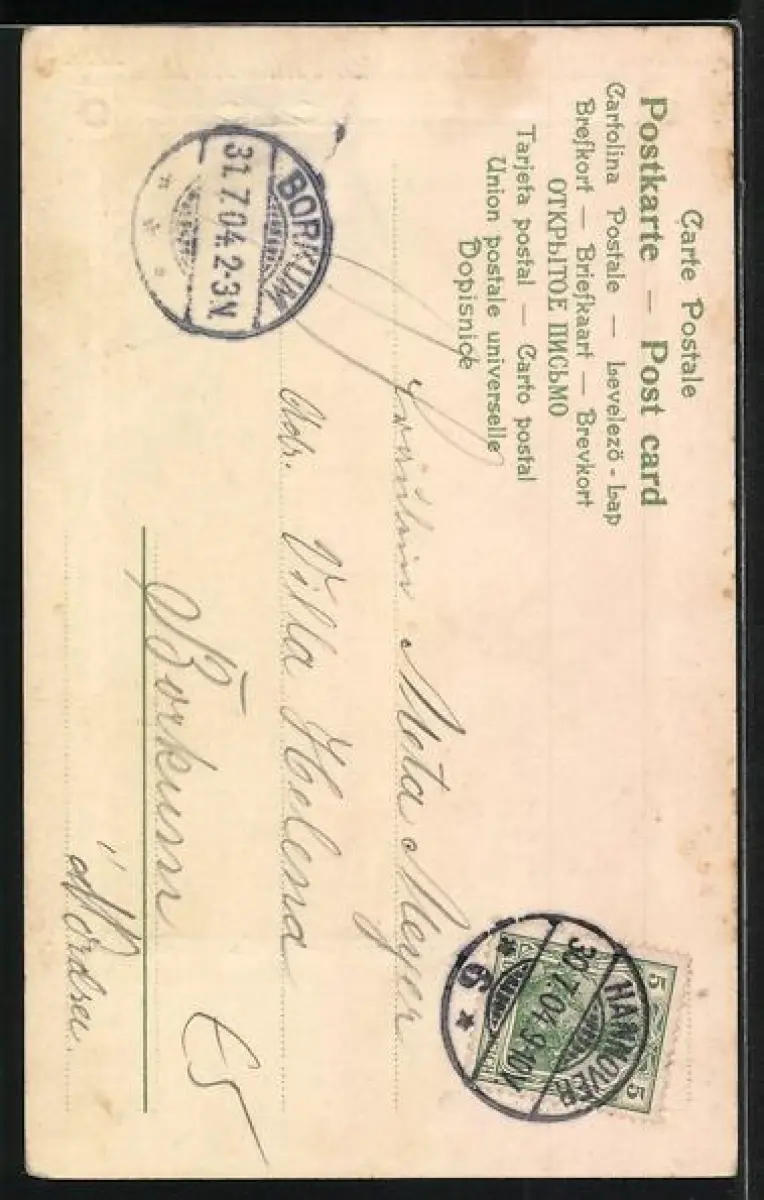 Carte Postale
Postkarte — Post card
Cartolina Postale — Levelezö-Lap
Brefkort — Briefkaart — Brevkort
ОТКРЫТОЕ ПИСЬМО
Tarjeta postal — Carto postal
Union postale universelle
Dopisnice
HANNOVER
30.7.04.9-10V
* 9 *
5 5
BORKUM
31.7.04.2-3N
Fräulein Meta Meyer
Adr. Villa Helena
Borkum
Nordsee